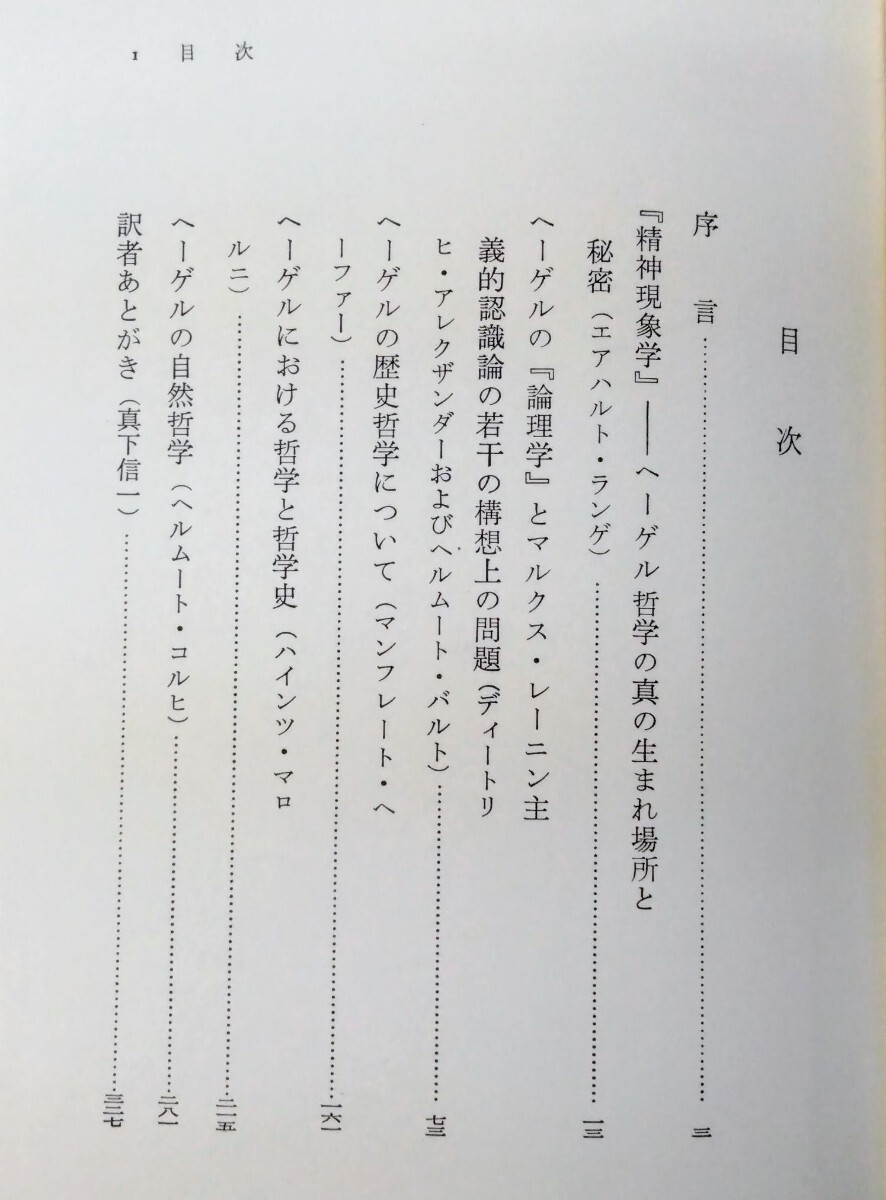 1 目次
目次
序言……三
『精神現象学』――ヘーゲル哲学の真の生まれ場所と
秘密（エアハルト・ランゲ）……一三
ヘーゲルの『論理学』とマルクス・レーニン主
義的認識論の若干の構想上の問題（ディートリ
ヒ・アレクザンダーおよびヘルムート・バルト）……七三
ヘーゲルの歴史哲学について（マンフレート・ヘ
ーファー）……一六一
ヘーゲルにおける哲学と哲学史（ハインツ・マロ
ルニ）……二一五
ヘーゲルの自然哲学（ヘルムート・コルヒ）……二八一
訳者あとがき（真下信一）……三二七